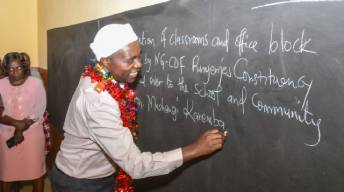 tion of classrooms and office block
by NG-CDF Runyenjes Constituency
over to the School and Community
Muchangi Karemba